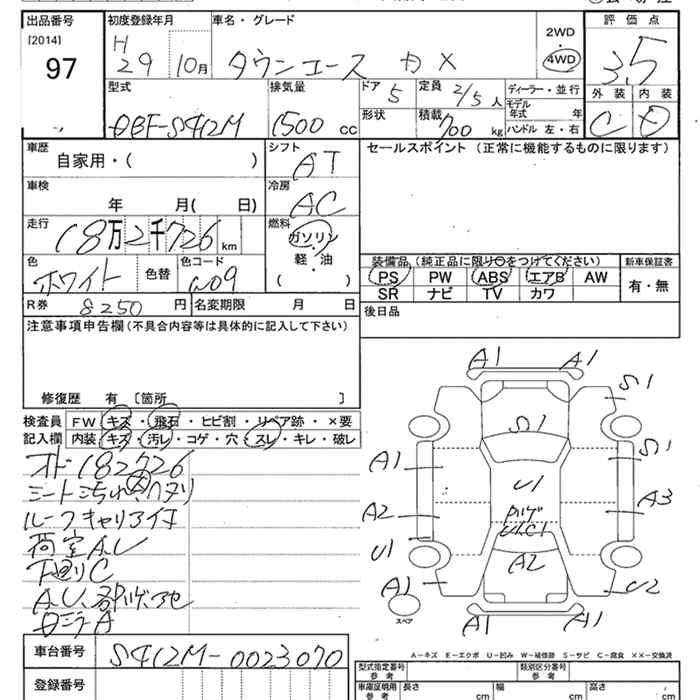 出品番号 初度登録年月 車名・グレード 2WD・4WD 評価点
[2014] H
97 29 10月 タウンエース DX 3.5
型式 排気量 ドア 5 定員 2/5人 ディーラー・並行 外装 内装
DBF-S412M 1500 cc 形状 積載 700 kg モデル年式 年 ハンドル 左・右 C D
車歴 シフト セールスポイント (正常に機能するものに限ります)
自家用・( ) AT
車検 冷房
年 月( 日) AC
走行 燃料
18万2千726 km ガソリン・軽・油
装備品 (純正品に限り○をつけてください) 新車保証書
色 色替 色コード ( ) PS PW ABS エアB AW 有・無
ホワイト W09 SR ナビ TV カワ
R券 8250 円 名変期限 月 日 後日品
注意事項申告欄 (不具合内容等は具体的に記入して下さい)
修復歴 有 [箇所 ]
検査員 FW キズ・飛石・ヒビ割・リペア跡・×要
記入欄 内装 キズ・汚レ・コゲ・穴・スレ・キレ・破レ
オド182726
シート汚れ
ルーフキャリア
荷室A.U
下廻りC
A.U.
A1 A1
S1
S1
A1 S1
U1
A2 A3
U1 U1C1
A2
A1 U2
スペア
A1 A1
A-キズ E-エクボ U-凹み W-補修跡 S-サビ C-腐食 ××-交換済
車台番号 S412M-0023070
型式指定番号 参考 類別区分番号 参考
登録番号 車庫証明用 参考 長さ cm 幅 cm 高さ cm